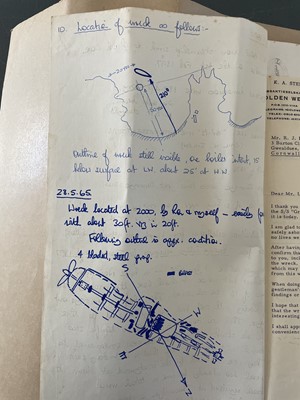 10. Location of wreck as follows:-
20°
Outline of wreck still visible, one boiler intact, 15'
below surface at LW about 25' at HW
28.5.65.
Wreck located at 2000, by & myself - easily
with about 30ft. vis in 20ft.
Following outline is approx. condition.
4 Bladed, steel prop.
S
W
E
N
R. A. STE
OLDEN WE
Mr. R. J.
3 Burton C
Cornwall
Dear Mr.
I thank you
the S/S "G
is to-date.
I am glad t
safely asho
no lives we
After having
confirm tha
to you, incl
the wreck,
which may
from this w
When doing
gentleman'
findings or
I hope that
that the wr
interesting
I shall app
convenient